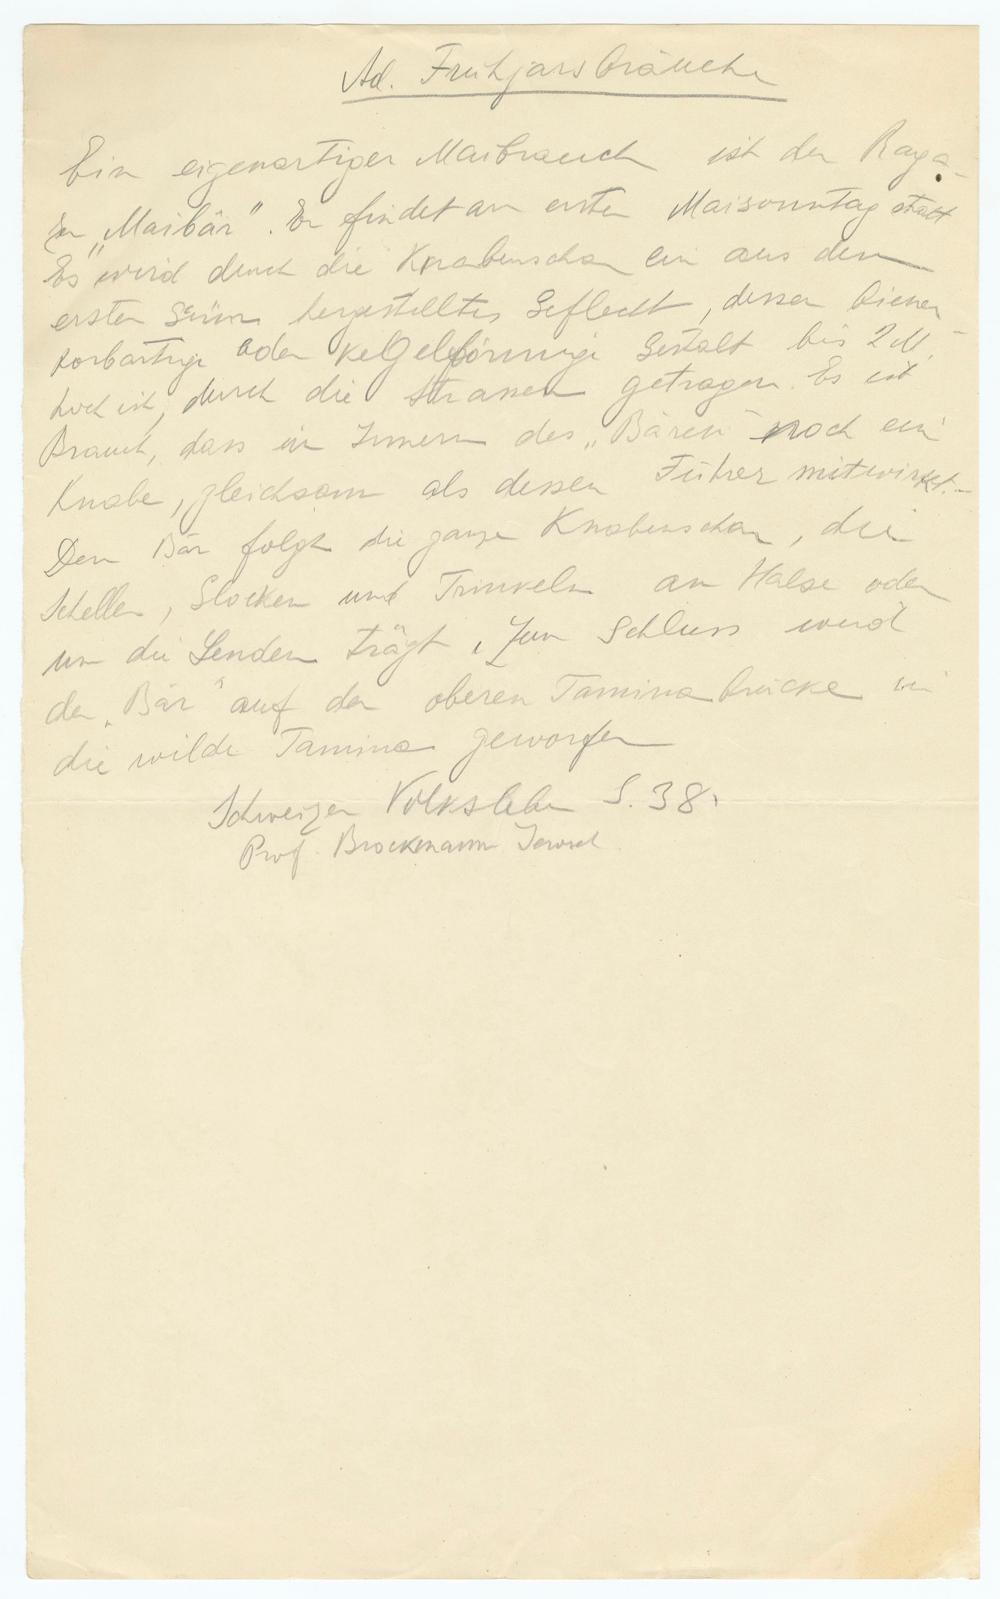 Ad. Frühjarsbräuche
Ein eigenartiger Maibrauch ist der Raga-
zer „Maibär“. Er findet am ersten Maisonntag statt
Es wird durch die Knabenschar ein aus dem
ersten Grün hergestelltes Geflecht, dessen bienen-
korbartige oder kegelförmige Gestalt bis 2 M.
hoch ist, durch die Strassen getragen. Es ist
Brauch, dass im Innern des „Bären“ noch ein
Knabe, gleichsam als dessen Führer mitwirkt.-
Dem Bär folgt die ganze Knabenschar, die
Schellen, Glocken und Trinkeln am Halse oder
um die Lenden trägt. Zum Schluss wird
der „Bär“ auf der oberen Taminabrücke in
die wilde Tamina geworfen
Schweizer Volksleben S. 38.
Prof. Brockmann Jerosch